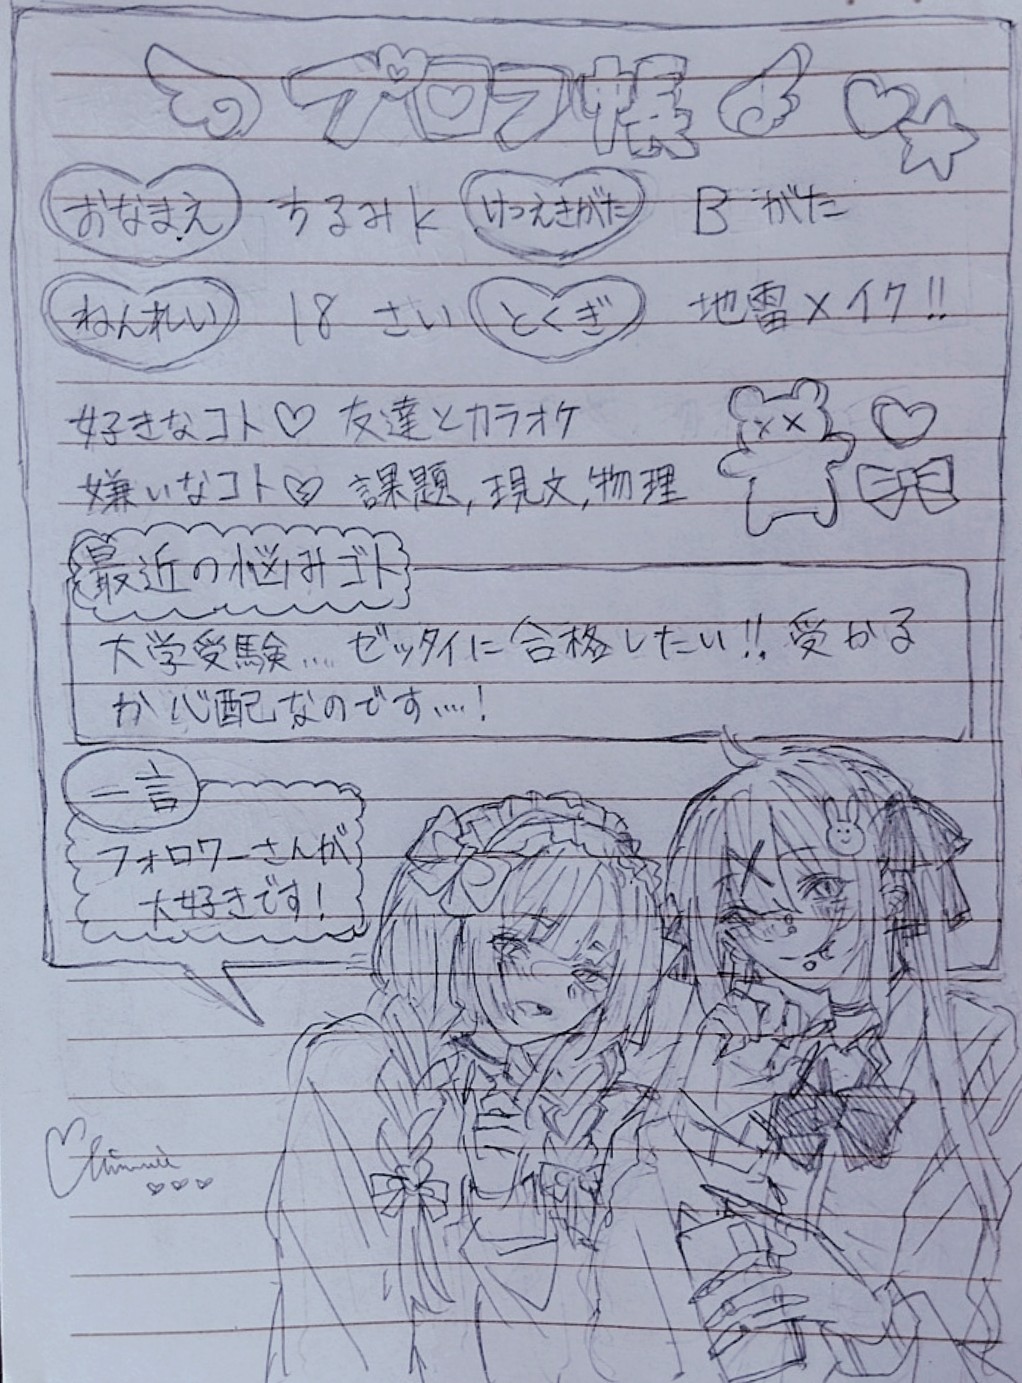 プロフ帳
おなまえ ちるみk けつえきがた B がた
ねんれい 18 さい とくぎ 地雷メイク!!
好きなコト♡ 友達とカラオケ
嫌いなコト♡ 課題,現文,物理
最近の悩みゴト
大学受験... ゼッタイに合格したい!! 受かる
か心配なのです...!
一言
フォロワーさんが
大好きです!